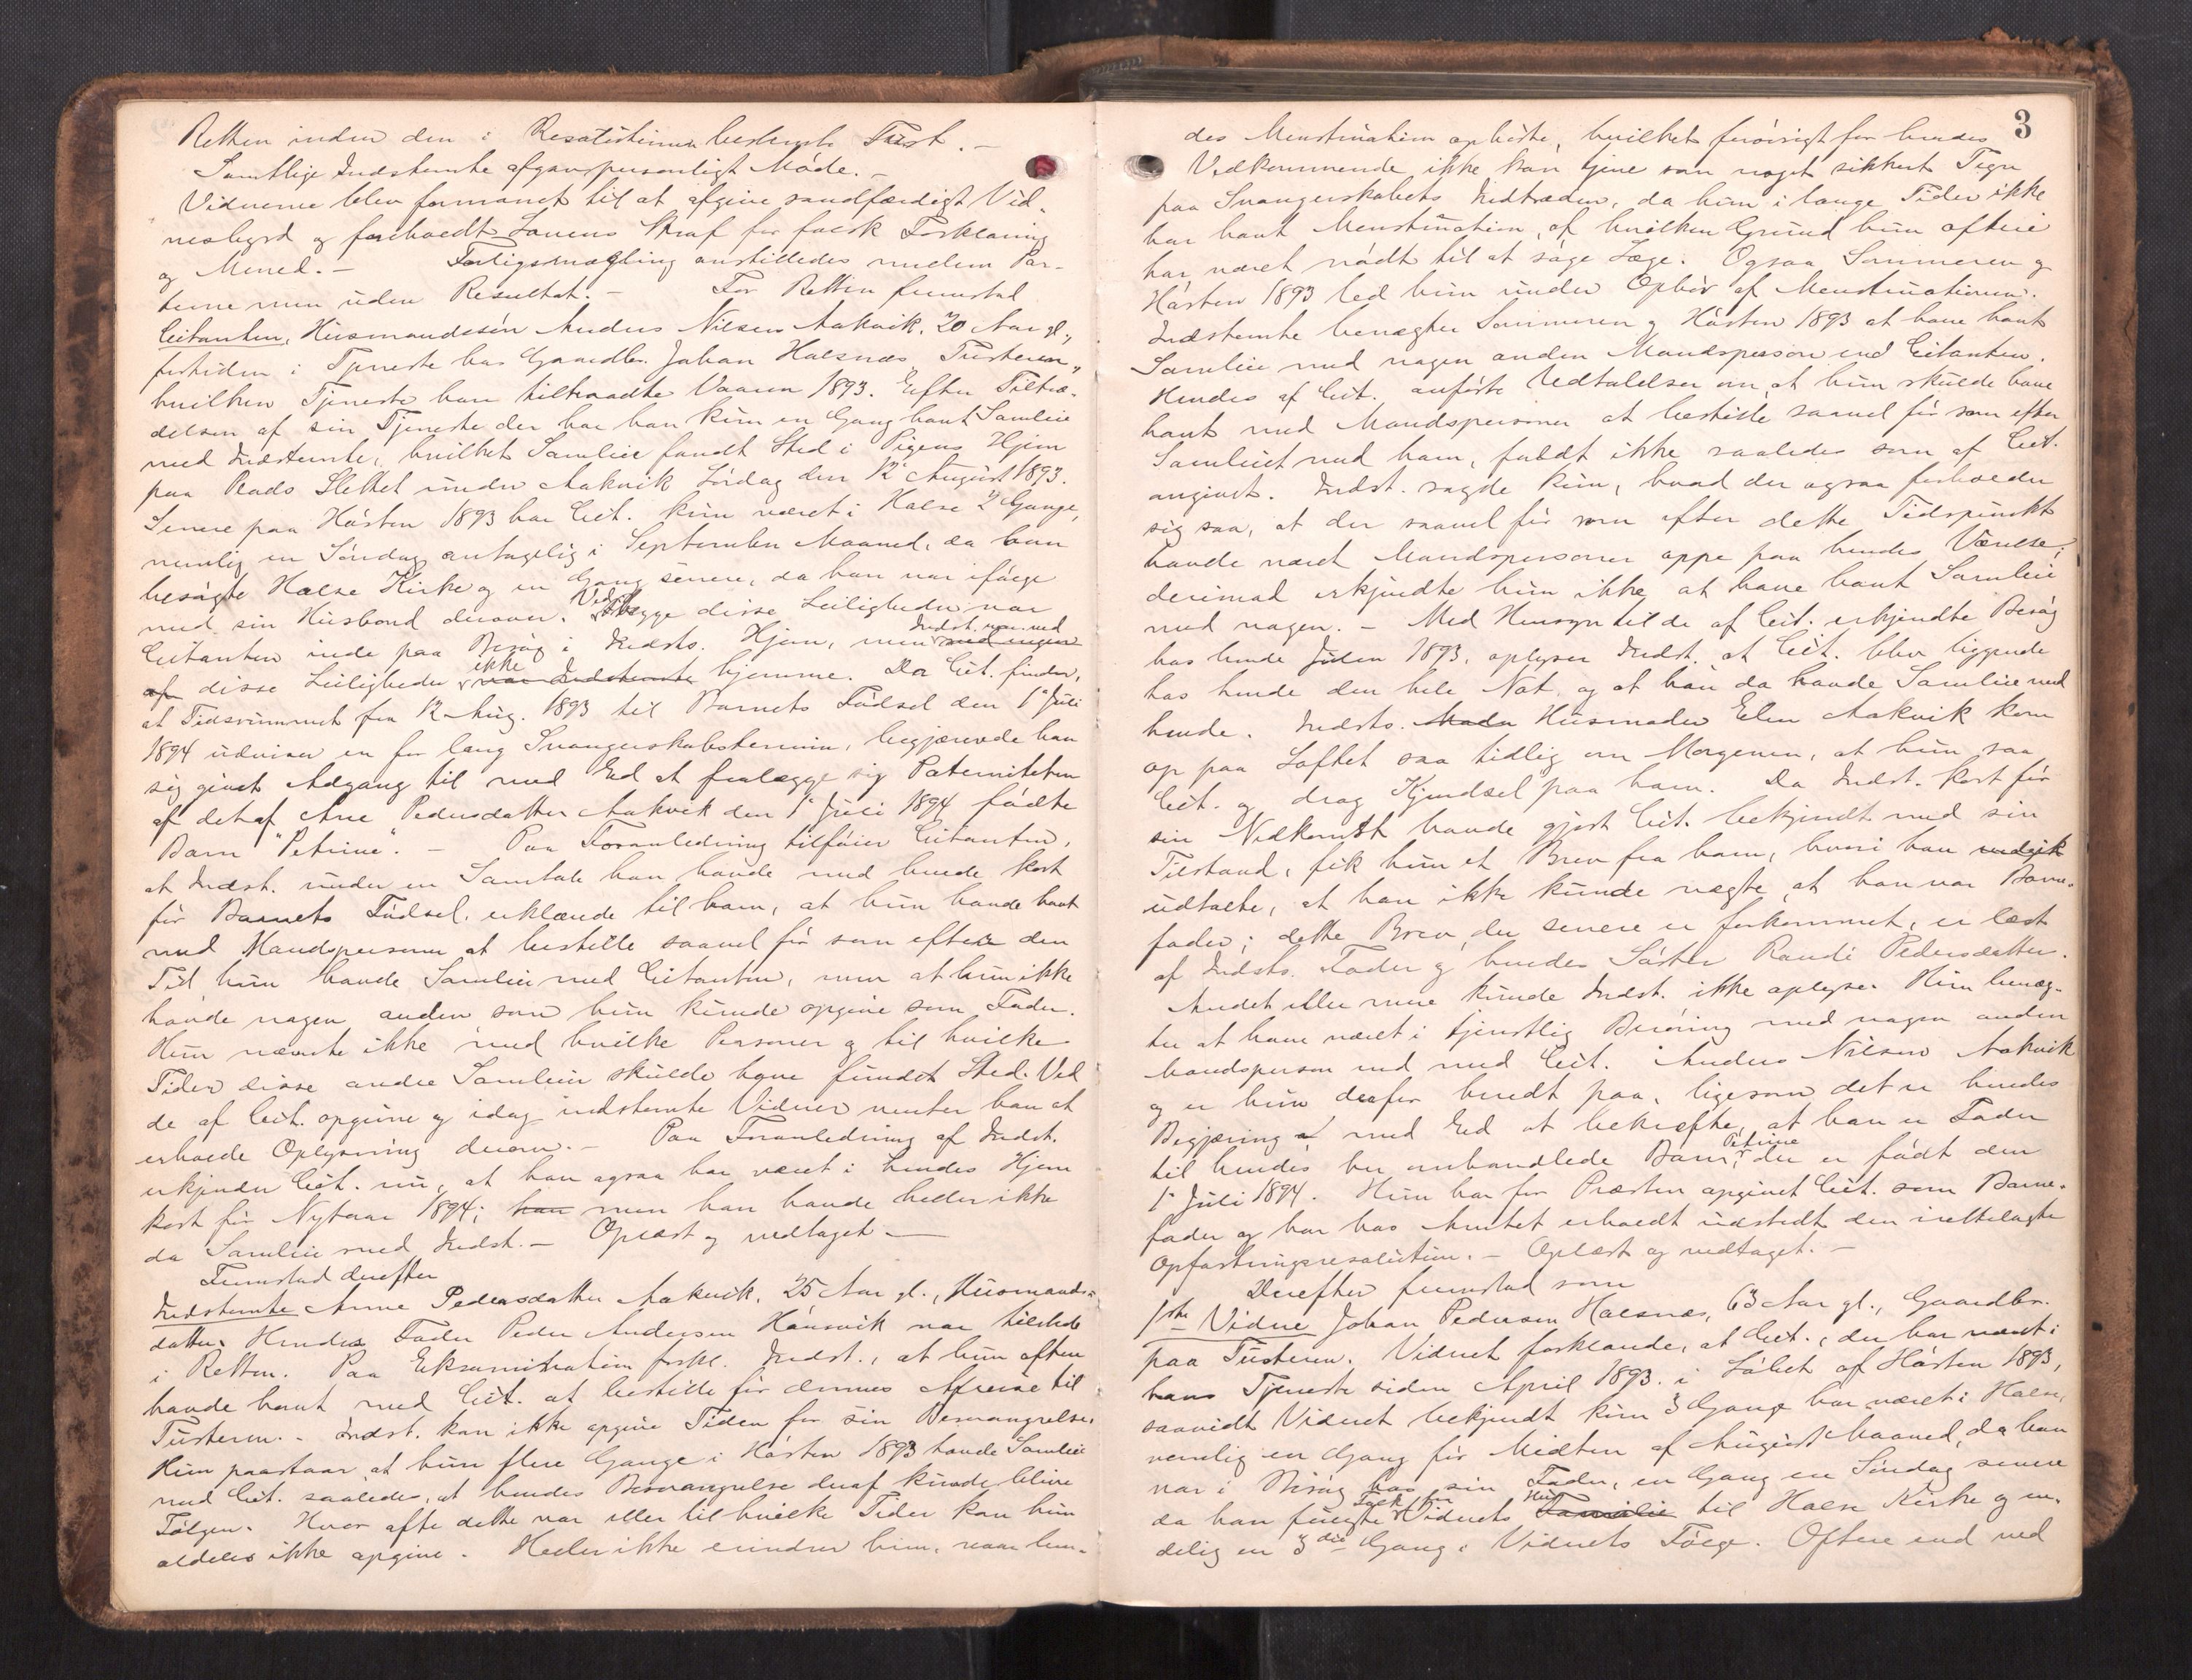 Retten inden den i Resolutionen bestemte Frist. –
Samtlige Indstemte afgav personligt Møde. –
Vidnerne blev formanet til at afgive sandfærdigt Vid-
nesbyrd og foreholdt Lovens Straf for falsk Forklaring
og Mened. – Forligsmægling anstilledes mellem Par-
terne men uden Resultat. – For Retten fremstod
Citanten, Husmandssøn Anders Nilsen Aakvik, 20 Aar gl.,
fortiden i Tjeneste hos Gaardbr. Johan Halsnæs "Tusteren",
hvilken Tjeneste han tiltraadte Vaaren 1893. Efter Tiltræ-
delsen af sin Tjeneste der har han kun en Gang havt Samleie
med Indstemte, hvilket Samleie fandt Sted i Pigens Hjem
paa Plads Slettet under Aakvik Lørdag den 12te August 1893.
Senere paa Høsten 1893 har Cit. kun været i Halse 2 Gange,
nemlig en Søndag antagelig i September Maaned, da han
besøgte Halse Kirke og en Gang senere, da han var ifølge
med sin Husbond derover. Ved begge disse Leiligheder var
Citanten inde paa Besøg i Indsts. Hjem, men Indst. var ved med ingen
af disse Leiligheder ikke var Indstemte hjemme. Da Cit. finder,
at Tidsrummet fra 12 Aug. 1893 til Barnets Fødsel den 1ste Juli
1894 udviser en for lang Svangerskabstermin, begjærede han
sig givet Adgang til med Ed at fralægge sig Paterniteten
af det af Ane Pedersdatter Aakvik den 1ste Juli 1894 fødte
Barn "Petrine". – Paa Foranledning tilføier Citanten,
at Indst. under en Samtale han havde med hende kort
før Barnets Fødsel, erklærede til ham, at hun havde havt
med Mandspersoner at bestille saavel før som efter den
Tid hun havde Samleie med Citanten, men at hun ikke
havde nogen anden som hun kunde opgive som Fader.
Hun nævnte ikke med hvilke Personer og til hvilke
Tider disse andre Samleier skulde have fundet Sted. Ved
de af Cit. opgivne og idag indstemte Vidner venter han at
erholde Oplysning derom. – Paa Foranledning af Indst.
erkjender Cit. nu, at han ogsaa har været i hendes Hjem
kort før Nytaar 1894; han men han havde heller ikke
da Samleie med Indst. – Oplæst og vedtaget. –
Fremstod derefter
Indstemte Anne Pedersdatter Aakvik, 25 Aar gl., Husmands-
datter. Hendes Fader Peder Andersen Hønsvik var tilstede
i Retten. Paa Eksamination forkl. Indst., at hun ofte
havde havt med Cit. at bestille før dennes Afreise til
Tusteren. – Indst. kan ikke opgive Tiden for sin Besvangrelse.
Hun paastaar, at hun flere Gange i Høsten 1893 havde Samleie
med Cit. saaledes, at hendes Besvangrelse deraf kunde blive
Følgen. Hvor ofte dette var eller til hvilke Tider kan hun
aldeles ikke opgive. Heller ikke erindrer hun, naar hen-
3
des Menstruation ophørte, hvilket forøvrigt for hendes
Vedkommende ikke kan tjene som noget sikkert Tegn
paa Svangerskabets Indtræden, da hun i lange Tider ikke
har havt Menstruation, af hvilken Grund hun oftere
har været nødt til at søge Læge. Ogsaa Sommeren og
Høsten 1893 led hun under Ophør af Menstruationen.
Indstemte benægter Sommeren og Høsten 1893 at have havt
Samleie med nogen anden Mandsperson end Citanten.
Hendes af Cit. anførte Udtalelser om, at hun skulde have
havt med Mandspersoner at bestille saavel før som efter
Samleiet med ham, faldt ikke saaledes som af Cit.
angivet. Indst. sagde kun, hvad der ogsaa forholder
sig saa, at der saavel før som efter dette Tidspunkt
havde været Mandspersoner oppe paa hendes Værelse;
derimod erkjendte hun ikke at have havt Samleie
med nogen. – Med Hensyn til de af Cit. erkjendte Besøg
hos hende Julen 1893, oplyser Indst. at Cit. blev liggende
hos hende den hele Nat, og at han da havde Samleie med
hende. Indsts. Moder Husmoder Elen Aakvik kom
op paa Loftet saa tidlig om Morgenen, at hun saa
Cit. og drog Kjendsel paa ham. Da Indst. kort før
sin Nedkomst havde gjort Cit. bekjendt med sin
Tilstand, fik hun et Brev fra ham, hvori han
udtalte, at han ikke kunde nægte, at han var Barne-
fader; dette Brev, der senere er forkommet, er læst
af Indsts. Fader og hendes Søster Randi Pedersdatter.
Andet eller mere kunde Indst. ikke oplyse. Hun benæg-
ter at have været i kjønslig Berøring med nogen anden
Mandsperson end med Cit. Anders Nilsen Aakvik
og er hun derfor beredt paa, ligesom det er hendes
Begjæring at med Ed at bekræfte, at han er Fader
til hendes her omhandlede Barn Petrine, der er født den
1ste Juli 1894. Hun har for Præsten opgivet Cit. som Barne-
fader og har hos Amtet erholdt udstedt den irettelagte
Opfostringsresolution. – Oplæst og vedtaget. –
Derefter fremstod som
1ste Vidne Johan Pedersen Halsnæs, 63 Aar gl., Gaardbr.
paa Tusteren. Vidnet forklarede, at Cit., der har været i
hans Tjeneste siden April 1893, i Løbet af Høsten 1893,
saavidt Vidnet bekjendt kun 3 Gange har været i Halse,
nemlig en Gang før Midten af August Maaned, da han
var i Besøg hos sin Fader, en Gang en Søndag senere
da han fulgte Folk fra Vidnets Hus Familie til Halse Kirke og en-
delig en 3die Gang i Vidnets Følge. Oftere end ved